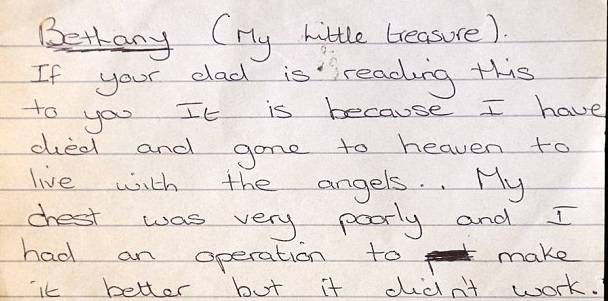 Bethany (My little treasure).
If your dad is reading this
to you It is because I have
died and gone to heaven to
live with the angels.. My
chest was very poorly and I
had an operation to make
it better but it didn't work.